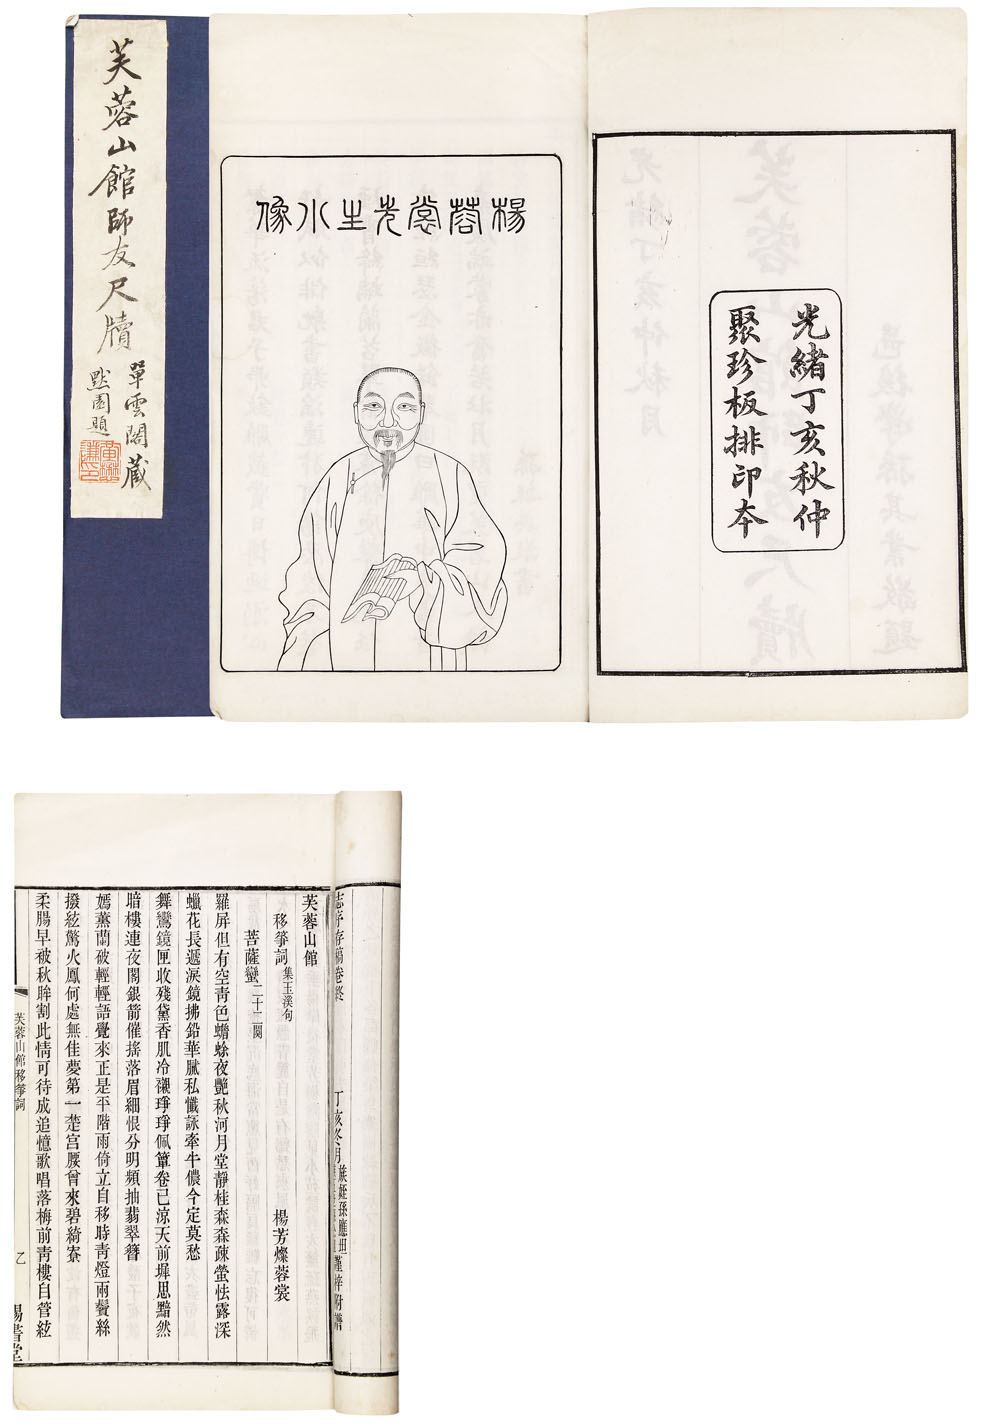 芙蓉山館師友尺牘
單雲閣藏
默園題
楊蓉裳先生小像
光緒丁亥秋仲
聚珍板排印本
志序存稿卷終
丁亥冬月族姪孫應坦謹梓附譜
芙蓉山館
移箏詞集玉溪句
楊芳燦蓉裳
菩薩蠻二十二闋
羅屏但有空靑色蟾蜍夜艷秋河月堂靜桂森森疎螢怯露深
蠟花長遞淚鏡拂鉛華膩私懺詠牽牛儂今定莫愁
舞鸞鏡匣收殘黛香肌冷襯琤琤佩簟卷已涼天前墀思黯然
暗樓連夜閣銀箭催搖落眉細恨分明頻抽翡翠簪
嫣薰蘭破輕輕語覺來正是平階雨倚立自移時靑燈兩鬢絲
撥絃驚火鳳何處無佳夢第一楚宮腰曾來碧綺寮
柔腸早被秋眸割此情可待成追憶歌唱落梅前靑樓自管絃
芙蓉山館移箏詞